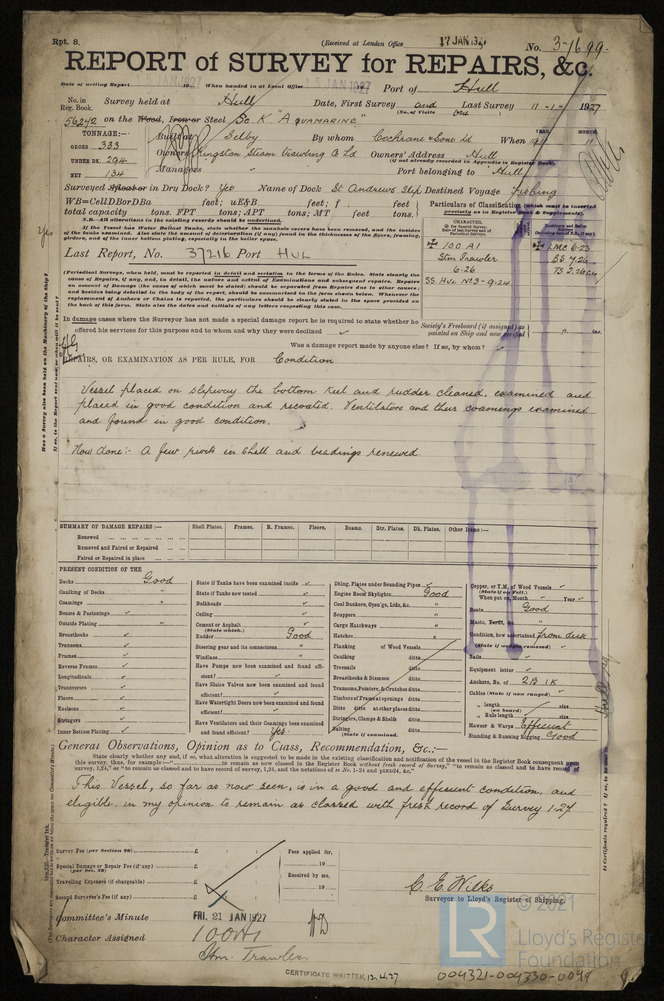 Rpt. 8.
(Received at London Office 17 JAN 1927
No. 37699
REPORT of SURVEY for REPAIRS, &c.
Date of writing Report 19 When handed in at Local Office 15 JAN 1927 19 Port of Hull
No. in Reg. Book. Survey held at Hull Date, First Survey and Last Survey 11-1- 1927
(No. of Visits One)
56242 on the Wood, Iron or Steel Sc. K "AQUAMARINE"
TONNAGE:— Built at Selby By whom Cochrane & Sons Ld When 1911 MONTH 11
GROSS 333
UNDER DK. 294
NET 134
Owners Kingston Steam Trawling Co Ld Owners' Address Hull
(if not already recorded in Appendix to Register Book)
Managers " Port belonging to Hull
Surveyed Afloat or in Dry Dock? Yes Name of Dock St Andrews Slip Destined Voyage Fishing
WB=CellDBorDBa feet; uE&B feet; f feet
total capacity tons. FPT tons; APT tons; MT feet tons.
N.B.—All alterations in the existing records should be underlined.
If the Vessel has Water Ballast Tanks, state whether the manhole covers have been removed, and the inside
of the tanks examined. Also state the amount of deterioration (if any) found in the thicknesses of the floors, framing,
girders, and of the inner bottom plating, especially in the boiler space.
Particulars of Classification (which must be inserted
precisely as in Register Book & Supplements).
CHARACTER.
✠ 100 A1
Stm Trawler
6-26
SS. HUL No 3-9.24
✠ LMC 6.23
BS 7.26
TS 2.26 CL
Last Report, No. 37216 Port HUL
(Periodical Surveys, when held, must be reported in detail and seriatim in the terms of the Rules. State clearly the
cause of Repairs, if any, and, in detail, the nature and extent of Examinations and subsequent repairs. Repairs
on account of Damage (the cause of which must be stated) should be separated from Repairs due to other causes;
and besides being detailed in the body of the report, should be summarized in the form shewn below. Whenever the
replacement of Anchors or Chains is reported, the particulars should be clearly stated in the space provided on
the back of this form. State also the dates and initials of any letters respecting this case.
In damage cases where the Surveyor has not made a special damage report he is required to state whether he
offered his services for this purpose and to whom and why they were declined ✓
Society's Freeboard (if assigned) as
painted on Ship and now verified " ins.
Was a damage report made by anyone else? If so, by whom? ✓
REPAIRS, OR EXAMINATION AS PER RULE, FOR Condition
Vessel placed on slipway the bottom keel and rudder cleaned, examined and
placed in good condition and recoated. Ventilators and their coamings examined
and found in good condition.
Now done:- A few rivets in shell and beadings renewed.
SUMMARY OF DAMAGE REPAIRS:— Shell Plates. Frames. R. Frames. Floors. Beams. Str. Plates. Dk. Plates. Other Items:—
Renewed
Removed and Faired or Repaired
Faired or Repaired in place
PRESENT CONDITION OF THE
Decks Good
Caulking of Decks "
Coamings "
Beams & Fastenings ✓
Outside Plating "
Breasthooks ✓
Transoms ✓
Frames ✓
Reverse Frames ✓
Longitudinals ✓
Transverses ✓
Floors ✓
Keelsons ✓
Stringers ✓
Inner Bottom Plating ✓
State if Tanks have been examined inside ✓
State if Tanks now tested ✓
Bulkheads ✓
Ceiling ✓
Cement or Asphalt ✓
(State which.)
Rudder Good
Steering gear and its connections "
Windlass "
Have Pumps now been examined and found effi-
cient? ✓
Have Sluice Valves now been examined and found
efficient? ✓
Have Watertight Doors now been examined and found
efficient? ✓
Have Ventilators and their Coamings been examined
and found efficient? Yes
Dblng. Plates under Sounding Pipes ✓
Engine Room Skylights Good
Coal Bunkers, Open'gs, Lids, &c. "
Scuppers "
Cargo Hatchways "
Hatches "
Planking of Wood Vessels.
Caulking ditto
Treenails ditto
Breasthooks & Stemson ditto
Transoms, Pointers, & Crutches ditto
Timbers of Frame at openings ditto
Ditto ditto at other places ditto
Stringers, Clamps & Shelfs ditto
Salting ditto
(State if examined.)
Copper, or Y.M. of Wood Vessels ✓
(State if on Felt.)
When put on, Month ✓ Year ✓
Boats Good
Masts, Yards, &c. "
Condition, how ascertained from deck
(State if wedges removed) ✓
Sails ✓
Equipment letter ✓
Anchors, No. of 2B 1K
Cables (State if now ranged) ✓
" length (on board) size
" Rule length size
Hawser & Warps Efficient
Standing & Running Rigging Good
General Observations, Opinion as to Class, Recommendation, &c.:—
State clearly whether any, and if so, what alteration is suggested to be made in the existing classification and notification of the vessel in the Register Book consequent upon
This Vessel, so far as now seen, is in a good and efficient condition, and
eligible in my opinion to remain as classed with fresh record of Survey 1.27.
Survey Fee (per Section 29) £
Special Damage or Repair Fee (if any) £
(per Sec. 29)
Travelling Expenses (if chargeable) £
Second Surveyor's Fee (if any) £
Fees applied for,
19
Received by me,
19
C. E. Wilks
Surveyor to Lloyd's Register of Shipping.
Committee's Minute FRI. 21 JAN 1927
Character Assigned 100A1
Stm. Trawler.
CERTIFICATE WRITTEN, 12.4.27
© 2021
LR
Lloyd's Register
Foundation
004321-004330-0099